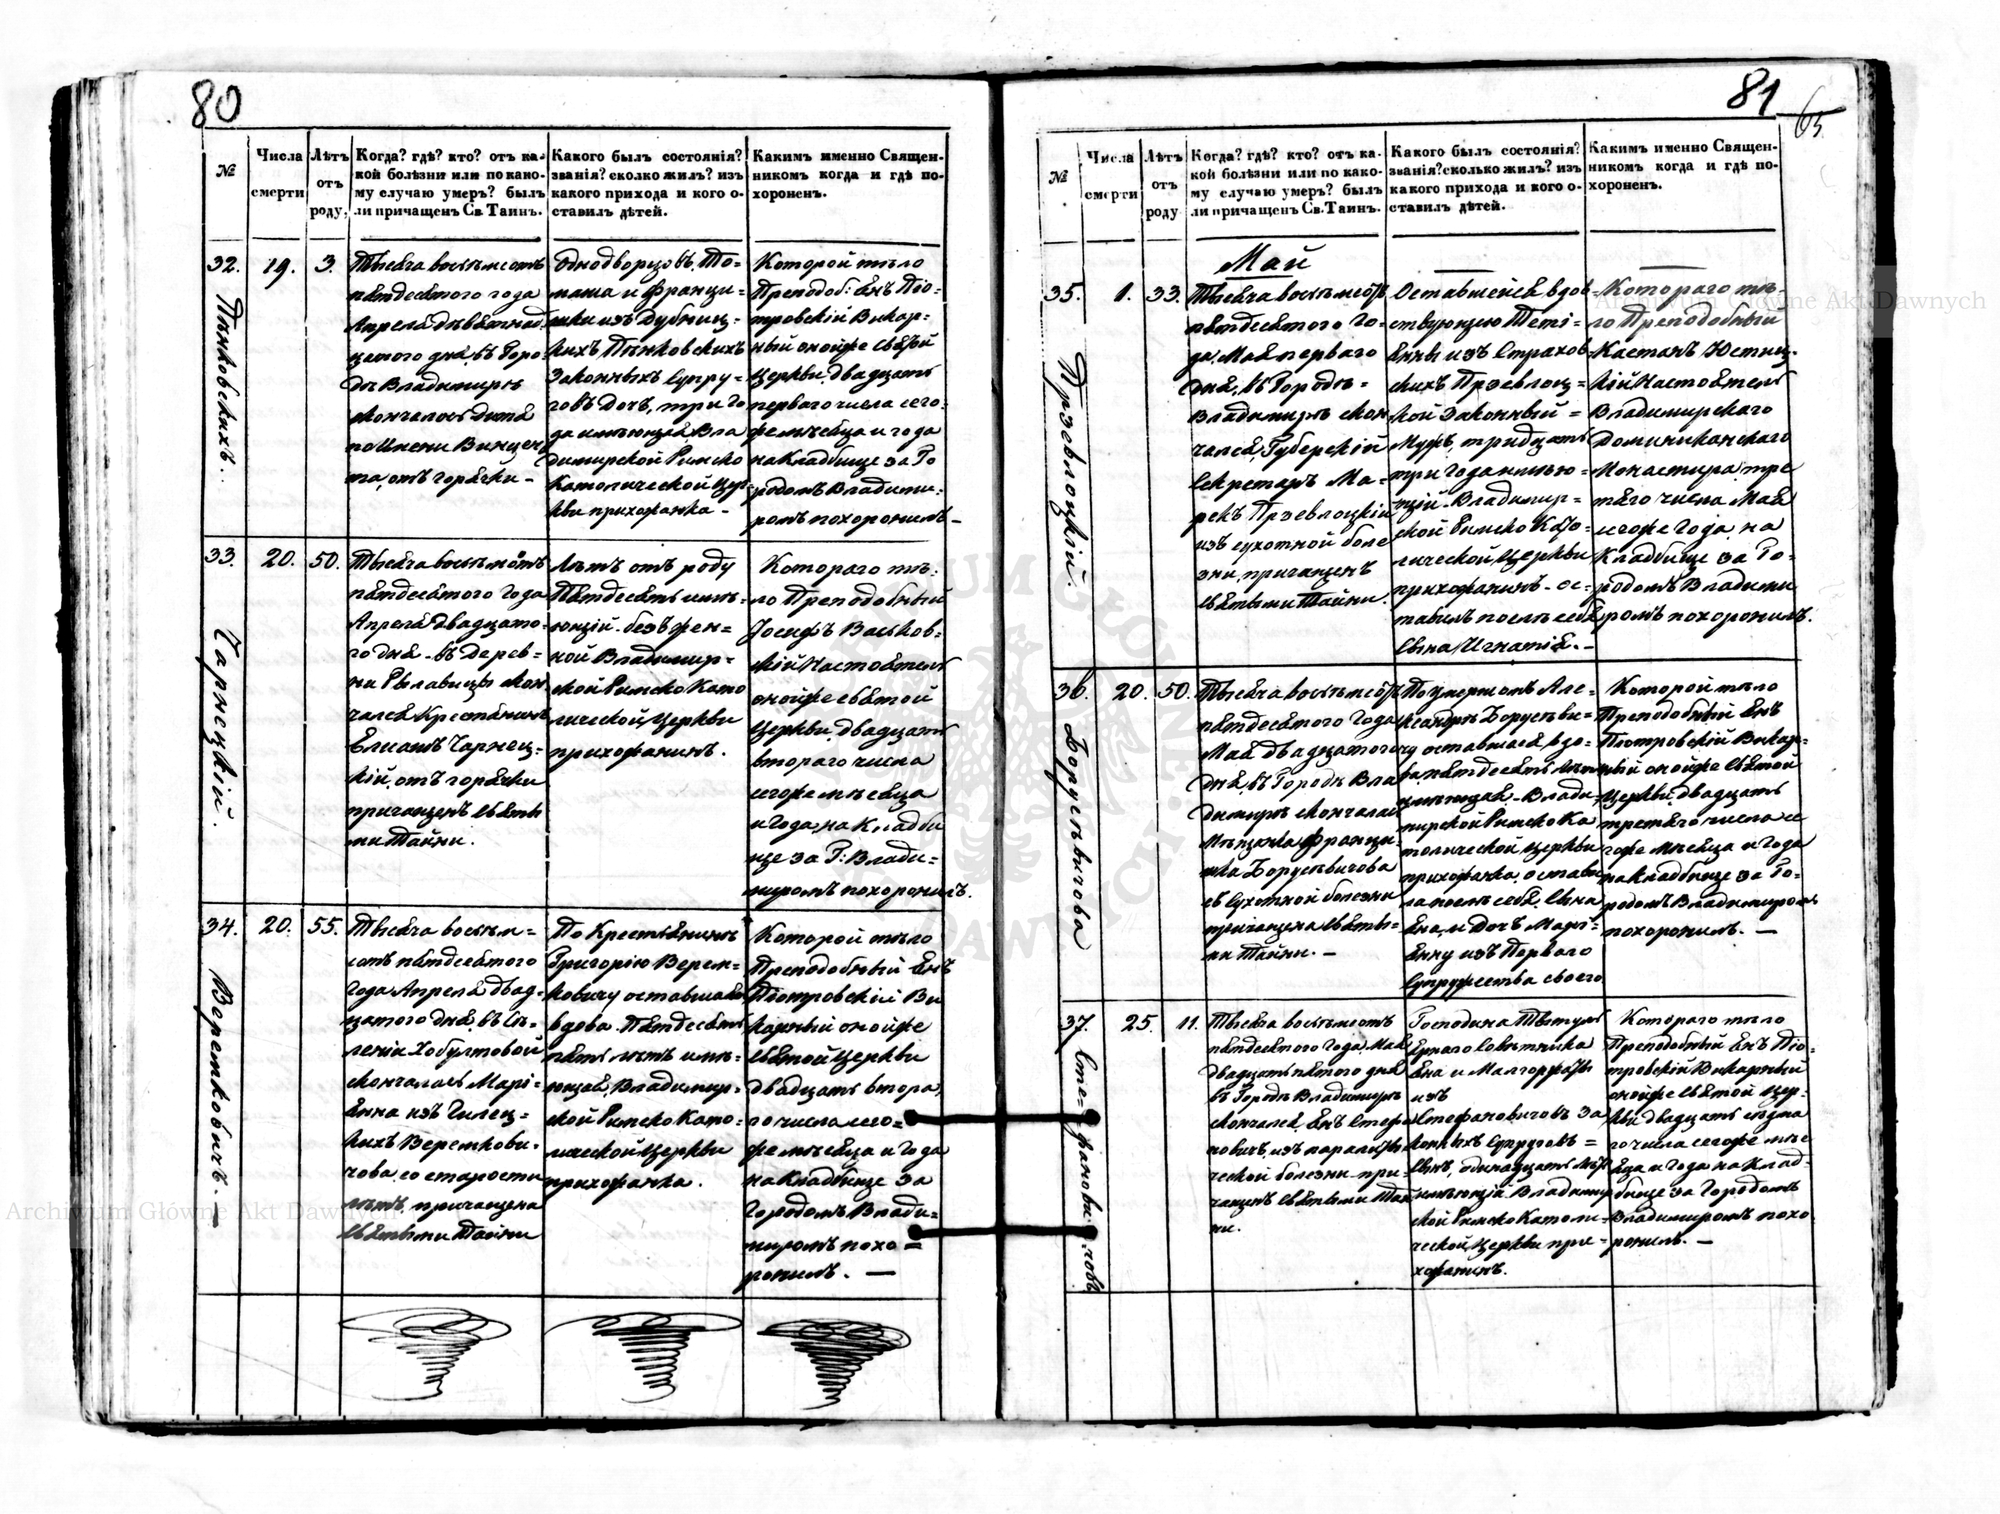 80
№
Числа смерти
Лѣтъ отъ роду.
Когда? гдѣ? кто? отъ ка-
кой болѣзни или по како-
му случаю умеръ? былъ
ли причащенъ Св. Таинъ.
Какого былъ состоянія?
званія? сколко жилъ? изъ
какого прихода и кого о-
ставилъ дѣтей.
Каким именно Священ-
никомъ когда и гдѣ по-
хороненъ.
32.
Пѣнковскихъ.
19.
3.
Тысяча восемьсотъ
пятдесятого года
Апреля девятнад
цатого дня, въ Горо-
дѣ Владимирѣ
скончалось Дитя
по Имени Винцен
та, отъ горячки –
Однодворцовъ, То-
маша и Францы=
шки изъ Дубниц-
кихъ Пѣнковскихъ
Законныхъ Супру-
говъ Дочь, три го
да имѣющая, Вла
димирской Римско
Католической Цер-
кви прихожанка –
Которой тѣло
Преподоб: Янъ Піо-
тровскій Викар-
ный онойже святой
Церкви, двадцать
первого числа сего-
же мѣсяца и года
на Кладбище за Го
родомъ Владими-
ромъ похоронилъ –
33.
Чарнецкій.
20.
50.
Тысяча восемьсотъ
пятдесятого Года
Апреля двадцато-
го дня – въ Дерев=
ни Рылавицы скон
чался Крестянинъ
Елиашъ Чарнец-
кій, отъ горячки
причащенъ Святы
ми Тайни.
Лѣтъ отъ роду
Пятдесять имѣ-
ющій – безъжен=
ной Владимир-
ской Римско Като
лической Церкви
прихожанинъ.
Которого тѣ-
ло Преподобный
Іосифъ Васьков-
скій Настоятель
онойже святой
Церкви, двадцать
второго числа
сегоже мѣсяца
и года, на Кладби
ще за Г: Влади=
миромъ похоронилъ.
34.
Веремковичъ. –
20.
55.
Тысяча восемь=
сотъ пятдесятого
года Апреля двад-
цатого дня, въ Се-
леніи Хобултовой
скончалась Марі-
янна изъ Гилец-
кихъ Веремкови-
чова, со старости
лѣтъ, причащена
Святыми Тайни
По Крестянинѣ
Григорію Верем-
ковичу оставшаяся
вдова – Пятдесять
пять лѣтъ имѣ-
ющая, Владимир-
ской Римско Като-
лической Церкви
прихожанка.
Которой тѣло
Преподобный Янъ
Піотровскій Ви
карный онойже
святой Церкви
двадцать второ
го числа сего=
же мѣсяца и года
на Кладбище за
Городомъ Влади=
миромъ похо=
ронилъ. –
81
65
№
Числа смерти
Лѣтъ отъ роду
Когда? гдѣ? кто? отъ ка-
кой болѣзни или по како-
му случаю умеръ? былъ
ли причащенъ Св. Таинъ.
Какого былъ состоянія?
званія? сколко жилъ? изъ
какого прихода и кого о-
ставилъ дѣтей.
Каким именно Священ-
никомъ когда и гдѣ по-
хороненъ.
Май
35.
Прзевлоцкій.
1.
33.
Тысяча восемьсотъ
пятдесятого Го-
да, Мая первого
дня, въ Городѣ=
Владимирѣ скон
чался, Губерскій
Секретарь Ма-
рекъ Прзевлоцкій
изъ сухотной боле
зни, причащенъ
Святыми Тайни.
Оставшейся вдов-
ствующею
изъ Страхов
скихъ Прзевлоц=
кой Законный=
Мужъ, тридцать
три года имѣю=
щій – Владимир=
ской Римско Като-
лической Церкви
прихожанинъ – ос-
тавилъ послѣ себя
Сына Игнатія. –
Которого тѣ-
ло Преподобный
Каетанъ Юстиц-
кій Настоятель
Владимирского
Доминиканского
Монастира, тре
тяго числа Мая
сегоже Года, на
Кладбище за Го-
родомъ Владими
ромъ похоронилъ.
36.
Борусѣвичова
20.
50.
Тысяча восемьсотъ
пятдесятого Года
Мая двадцатого
дня, въ Городѣ Вла
димирѣ скончалась
Мѣщанка Францы-
шка Борусѣвичова
съ Сухотной болезни
причащена Святы-
ми Тайни. –
По умершомъ Але-
ксандрѣ Борусѣви-
чу оставшаяся вдо-
ва, пятдесять лѣтъ
имѣющая – Влади-
мирской Римско Ка
толической Церкви
прихожанка, остави
ла послѣ себя, Сына
Яна, и Дочь Марі-
янну изъ Первого
Супружества своего
Которой тѣло
Преподобный Янъ
Піотровскій Викар-
ный онойже святой
Церкви, двадцать
третяго числа се
гоже мѣсяца и года
на Кладбище за Го-
родомъ Владимиромъ
похоронилъ. –
37.
Сте=фановичовъ
25.
11.
Тысяча восемьсотъ
пятдесятого года, Мая
двадцать пятого дня
въ Городѣ Владимирѣ
скончался, Янъ Стефа
новичъ, изъ паралижи
ческой болезни при-
чащенъ Святыми Тай
ни.
Господина Титул
ярного Совѣтника
Яна и Малгоржаты
изъ
Стефановичовъ За
конныхъ Супруговъ=
Сынъ, одинадцать лѣтъ
имѣющій – Владимир
ской Римско Католи-
ческой Церкви при-
хожанинъ.
Которого тѣло
Преподобный Янъ Піо-
тровскій Викарный
онойже святой Цер-
кви двадцать седма
го числа сегоже мѣс
яца и года на Клад-
бище за Городомъ
Владимиромъ похо-
ронилъ. –
Archiwum Główne Akt Dawnych
Archiwum Główne Akt Dawnych